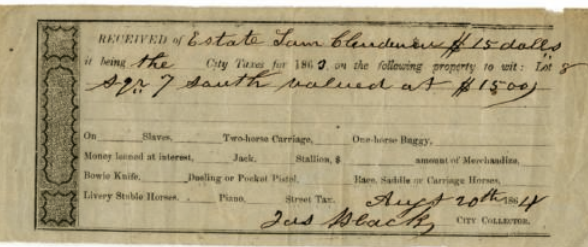 RECEIVED of Estate Sam Clendenen $15 dolls
it being the City Taxes for 1863 on the following property to wit: Lot 8
sqr 7 south valued at $1500
On Slaves, Two-horse Carriage, One-horse Buggy,
Money loaned at interest, Jack. Stallion, $ amount of Merchandize,
Bowie Knife, Dueling or Pocket Pistol, Race, Saddle or Carriage Horses,
Livery Stable Horses. Piano. Street Tax. Augt 20th 1864
Jas Black, CITY COLLECTOR.